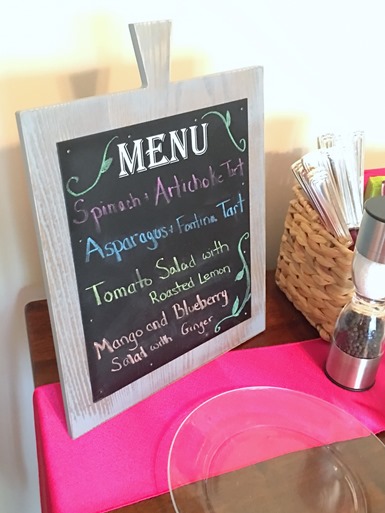 MENU
Spinach & Artichoke Tart
Asparagus & Fontina Tart
Tomato Salad with
Roasted Lemon
Mango and Blueberry
Salad with Ginger